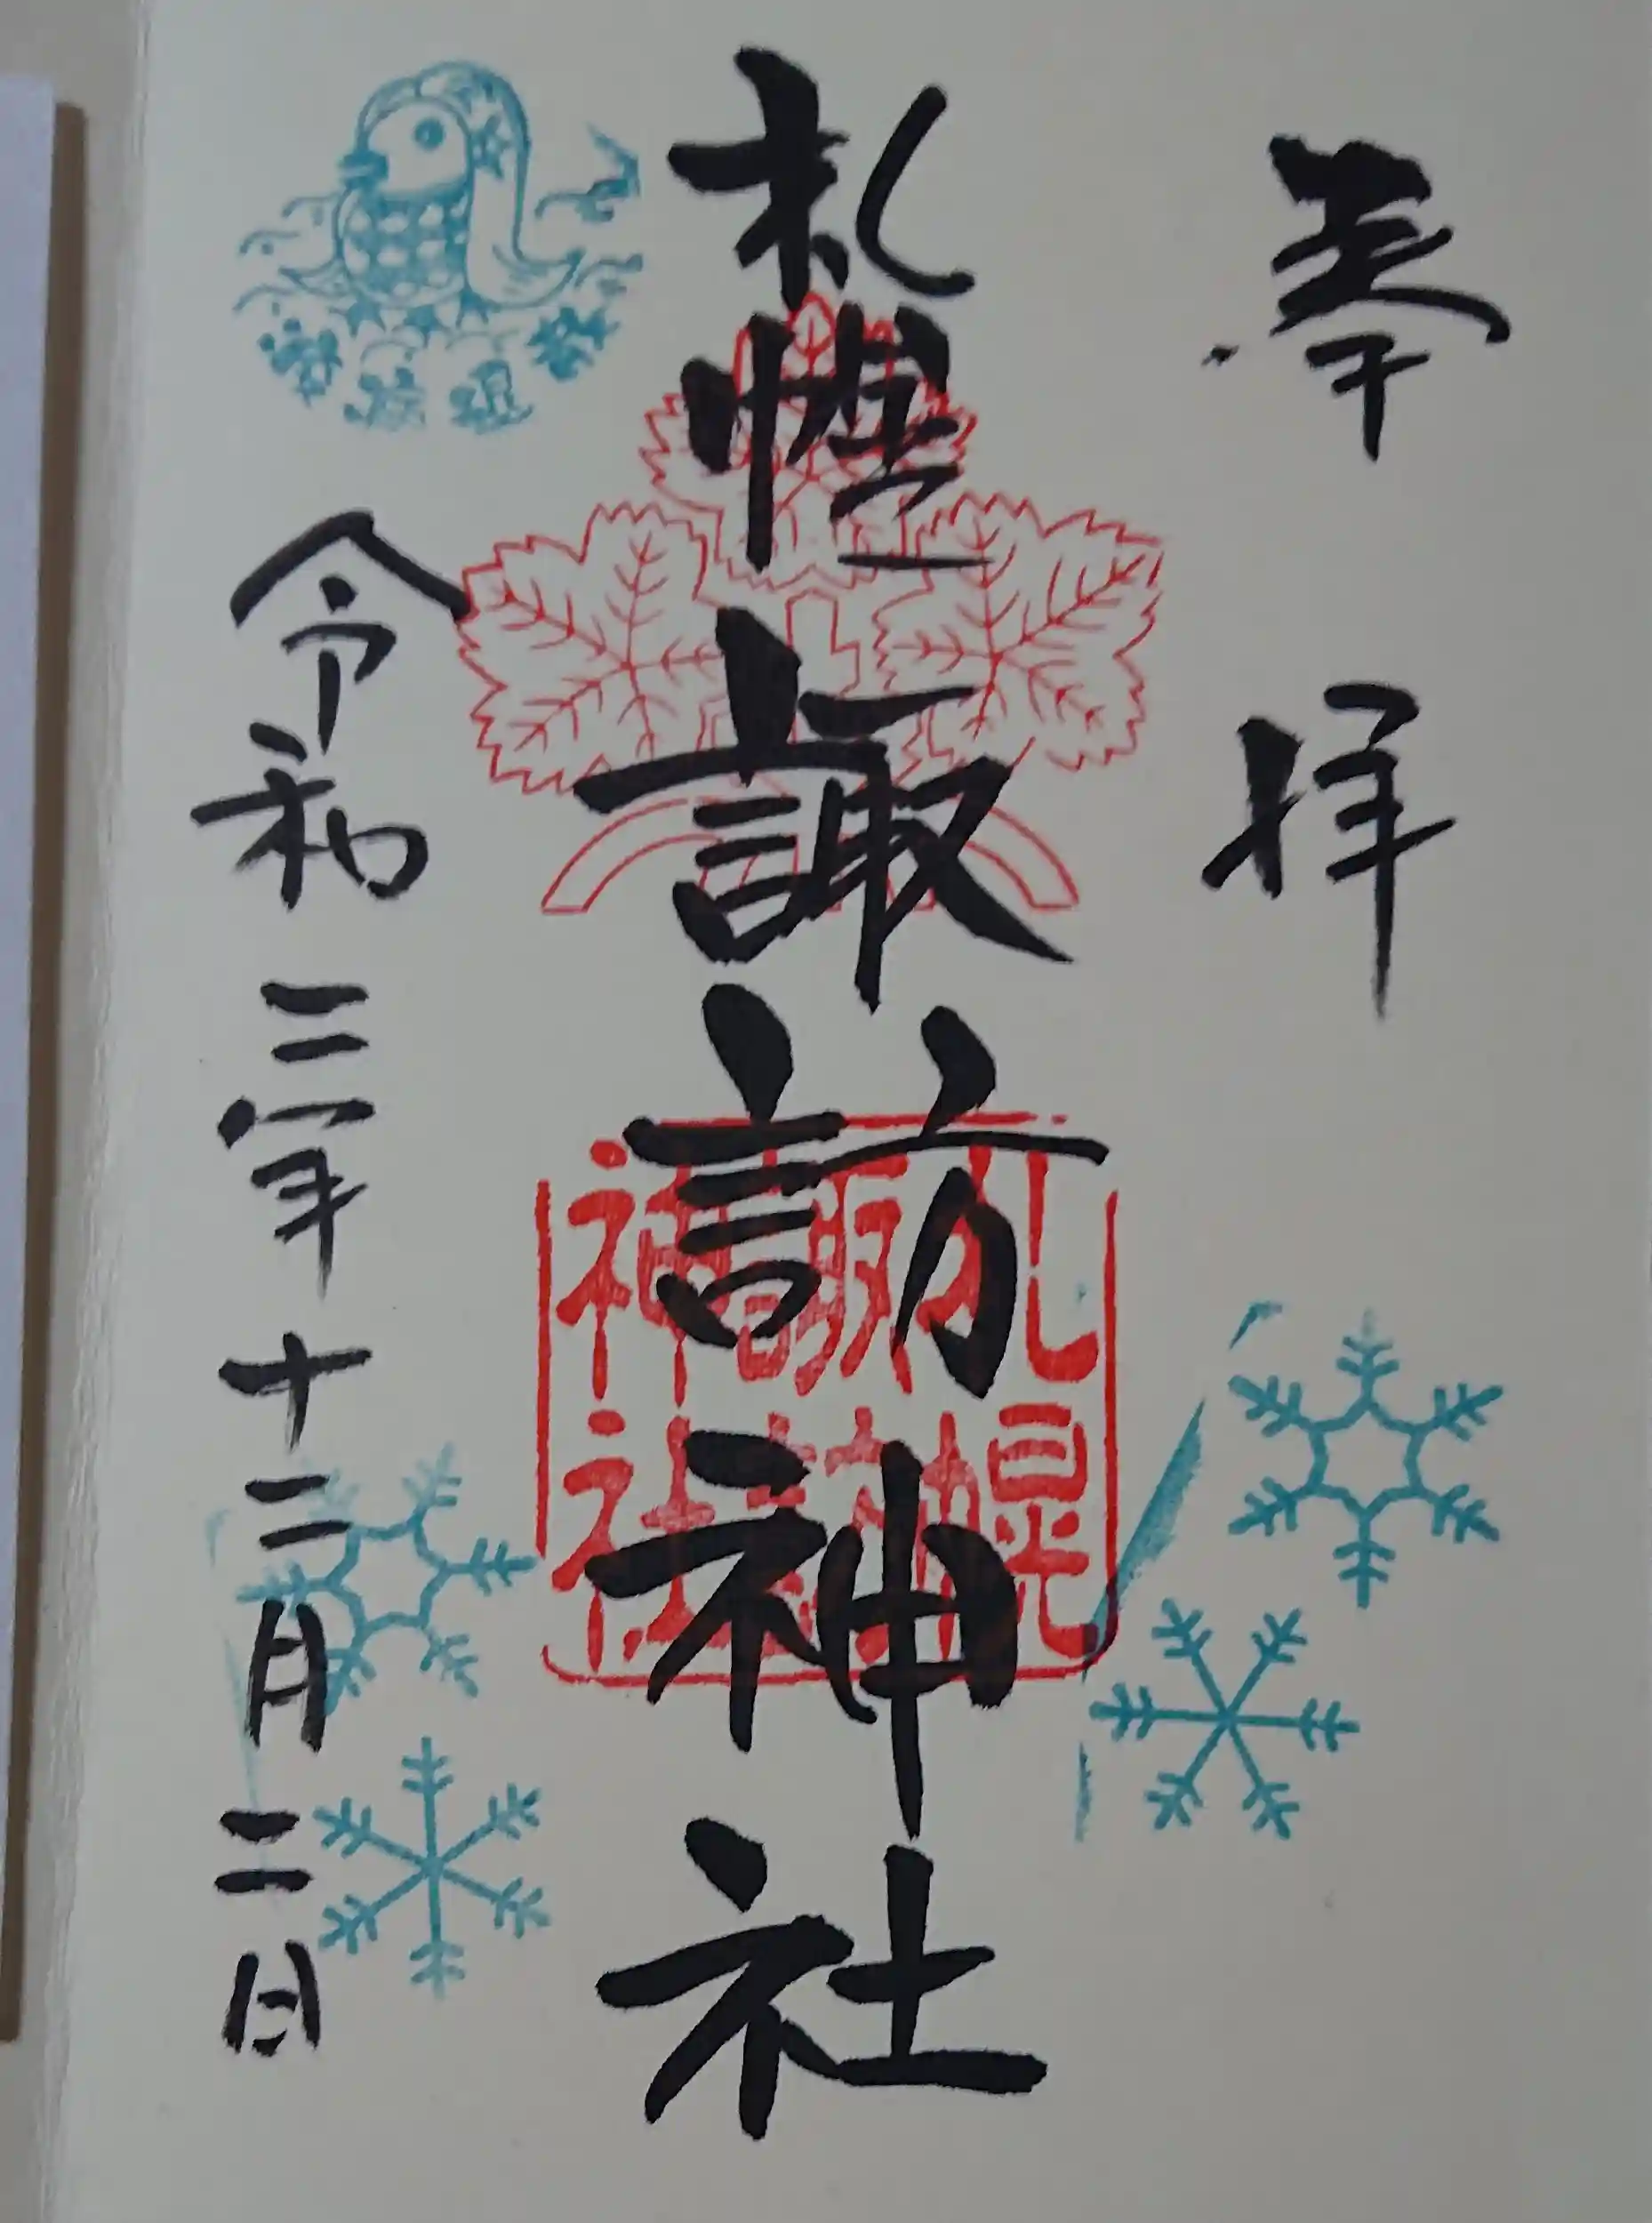 奉拝
札幌諏訪神社
札幌
諏訪
神社
令和三年十二月二日